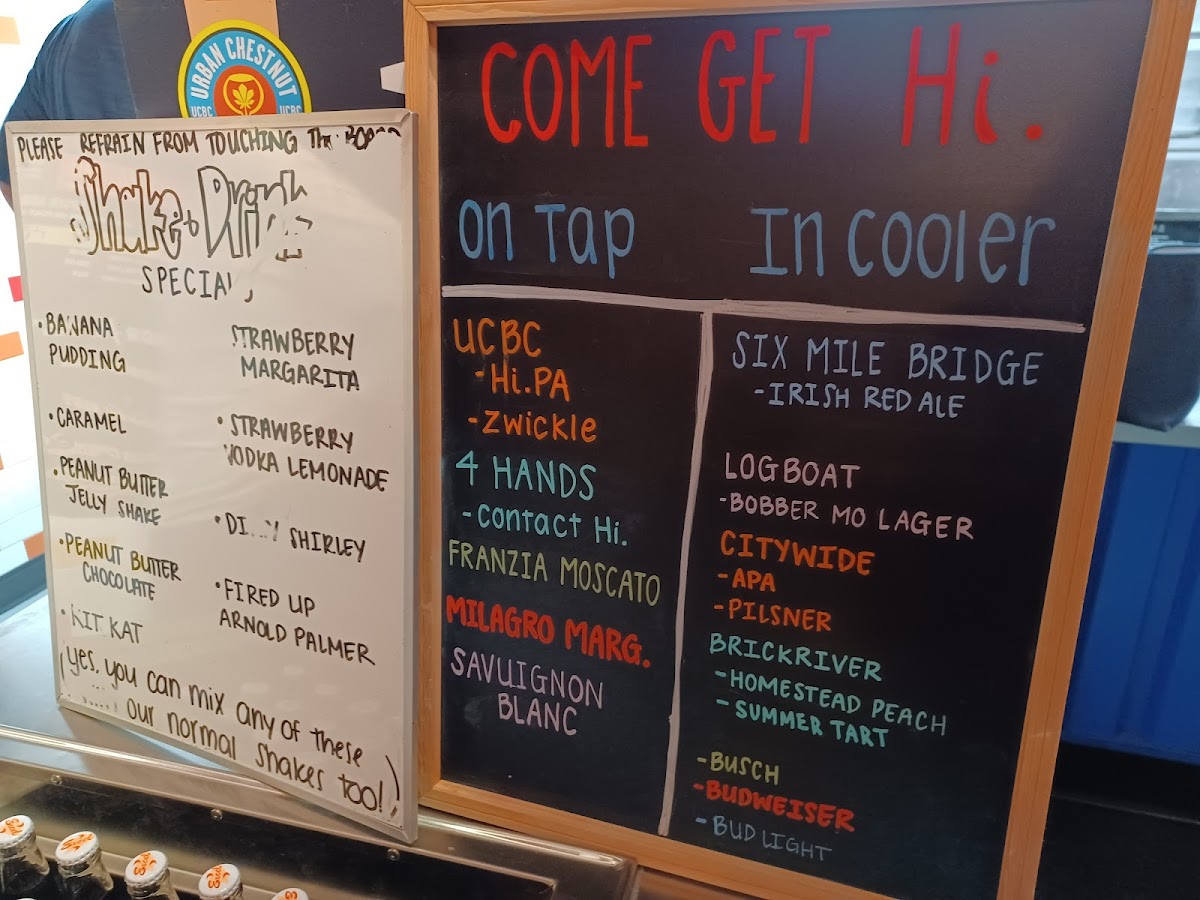 URBAN CHESTNUT
UCBC UCBC
PLEASE REFRAIN FROM TOUCHING THE
Shake + Drink
SPECIA
• BANANA
PUDDING
• CARAMEL
• PEANUT BUTTER
JELLY SHAKE
• PEANUT BUTTER
CHOCOLATE
• KIT KAT
STRAWBERRY
MARGARITA
• STRAWBERRY
VODKA LEMONADE
• SHIRLEY
• FIRED UP
ARNOLD PALMER
(yes, you can mix any of these
our normal shakes too!)
COME GET Hi.
on Tap
UCBC
- Hi.PA
- Zwickle
4 HANDS
- Contact Hi.
FRANZIA MOSCATO
MILAGRO MARG.
SAVUIGNON
BLANC
In cooler
SIX MILE BRIDGE
- IRISH RED ALE
LOGBOAT
- BOBBER MO LAGER
CITYWIDE
- APA
- PILSNER
BRICKRIVER
- HOMESTEAD PEACH
- SUMMER TART
- BUSCH
- BUDWEISER
- BUD LIGHT